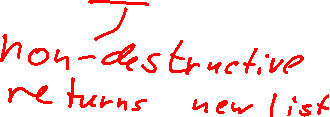 non-destructive
returns new list